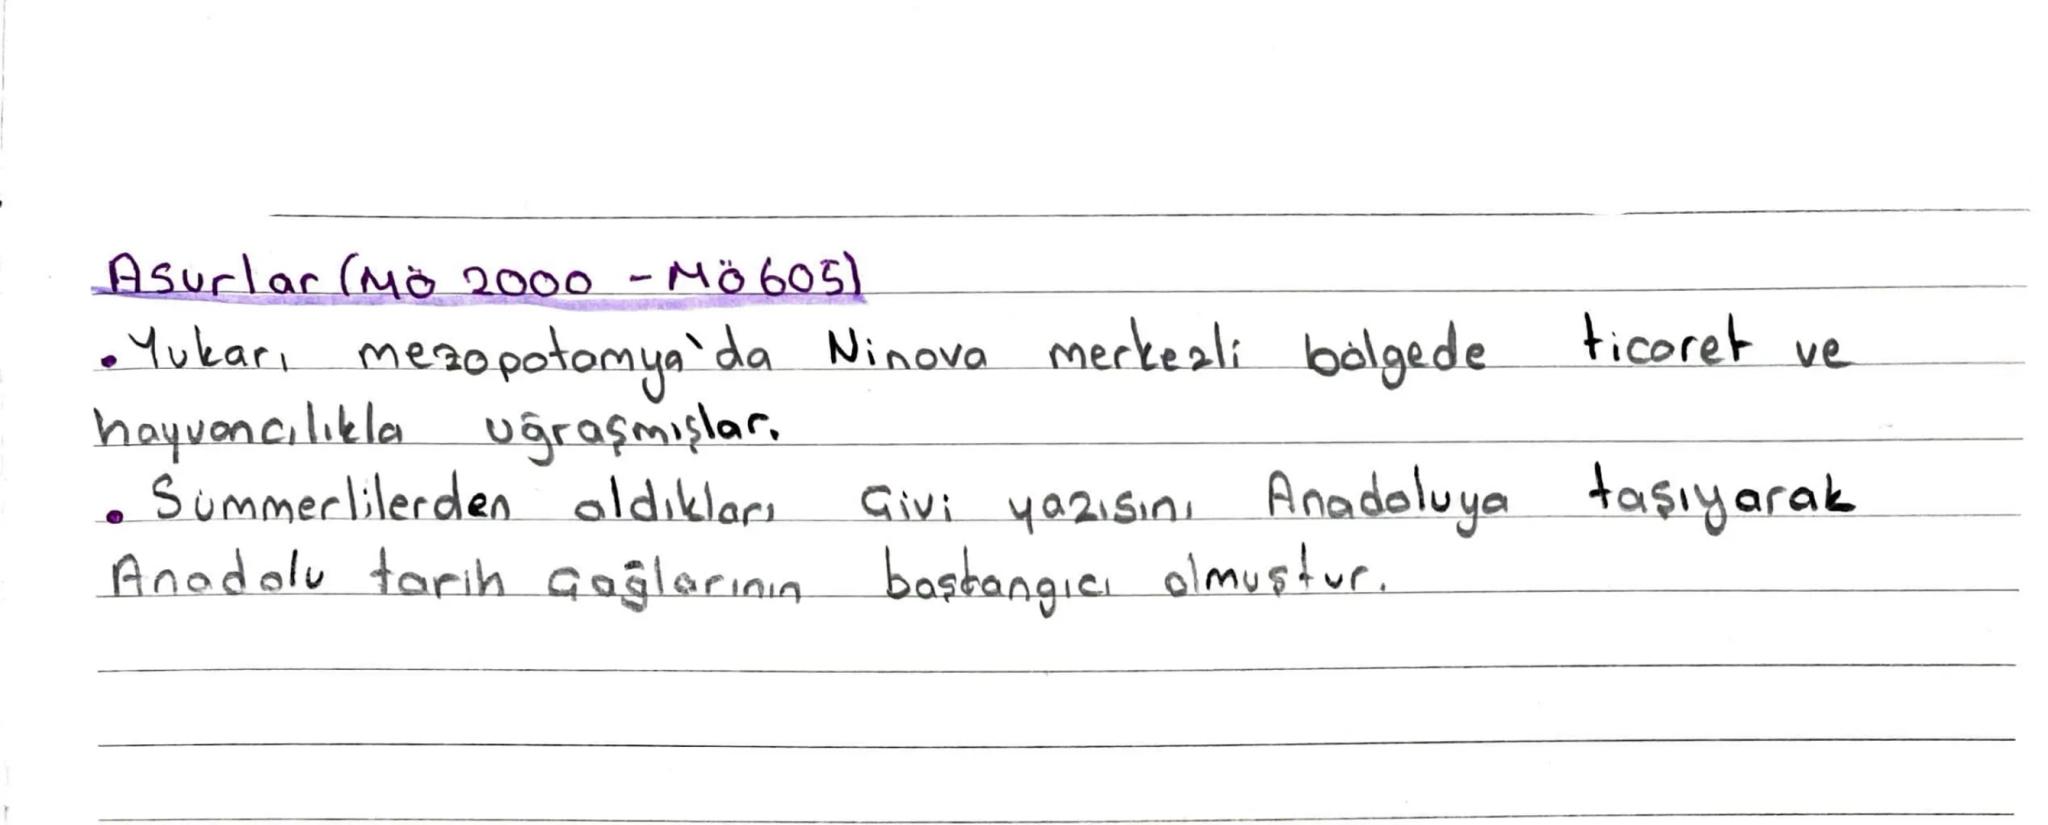 Asurlar (MÖ 2000 - MÖ 605)
• Yukarı mezopotamya'da Ninova merkezli bölgede ticaret ve
hayvancılıkla uğraşmışlar.
• Sümmerlilerden aldıkları Çivi yazısını Anadoluya taşıyarak
Anadolu tarih Çağlarının başlangıcı olmuştur.